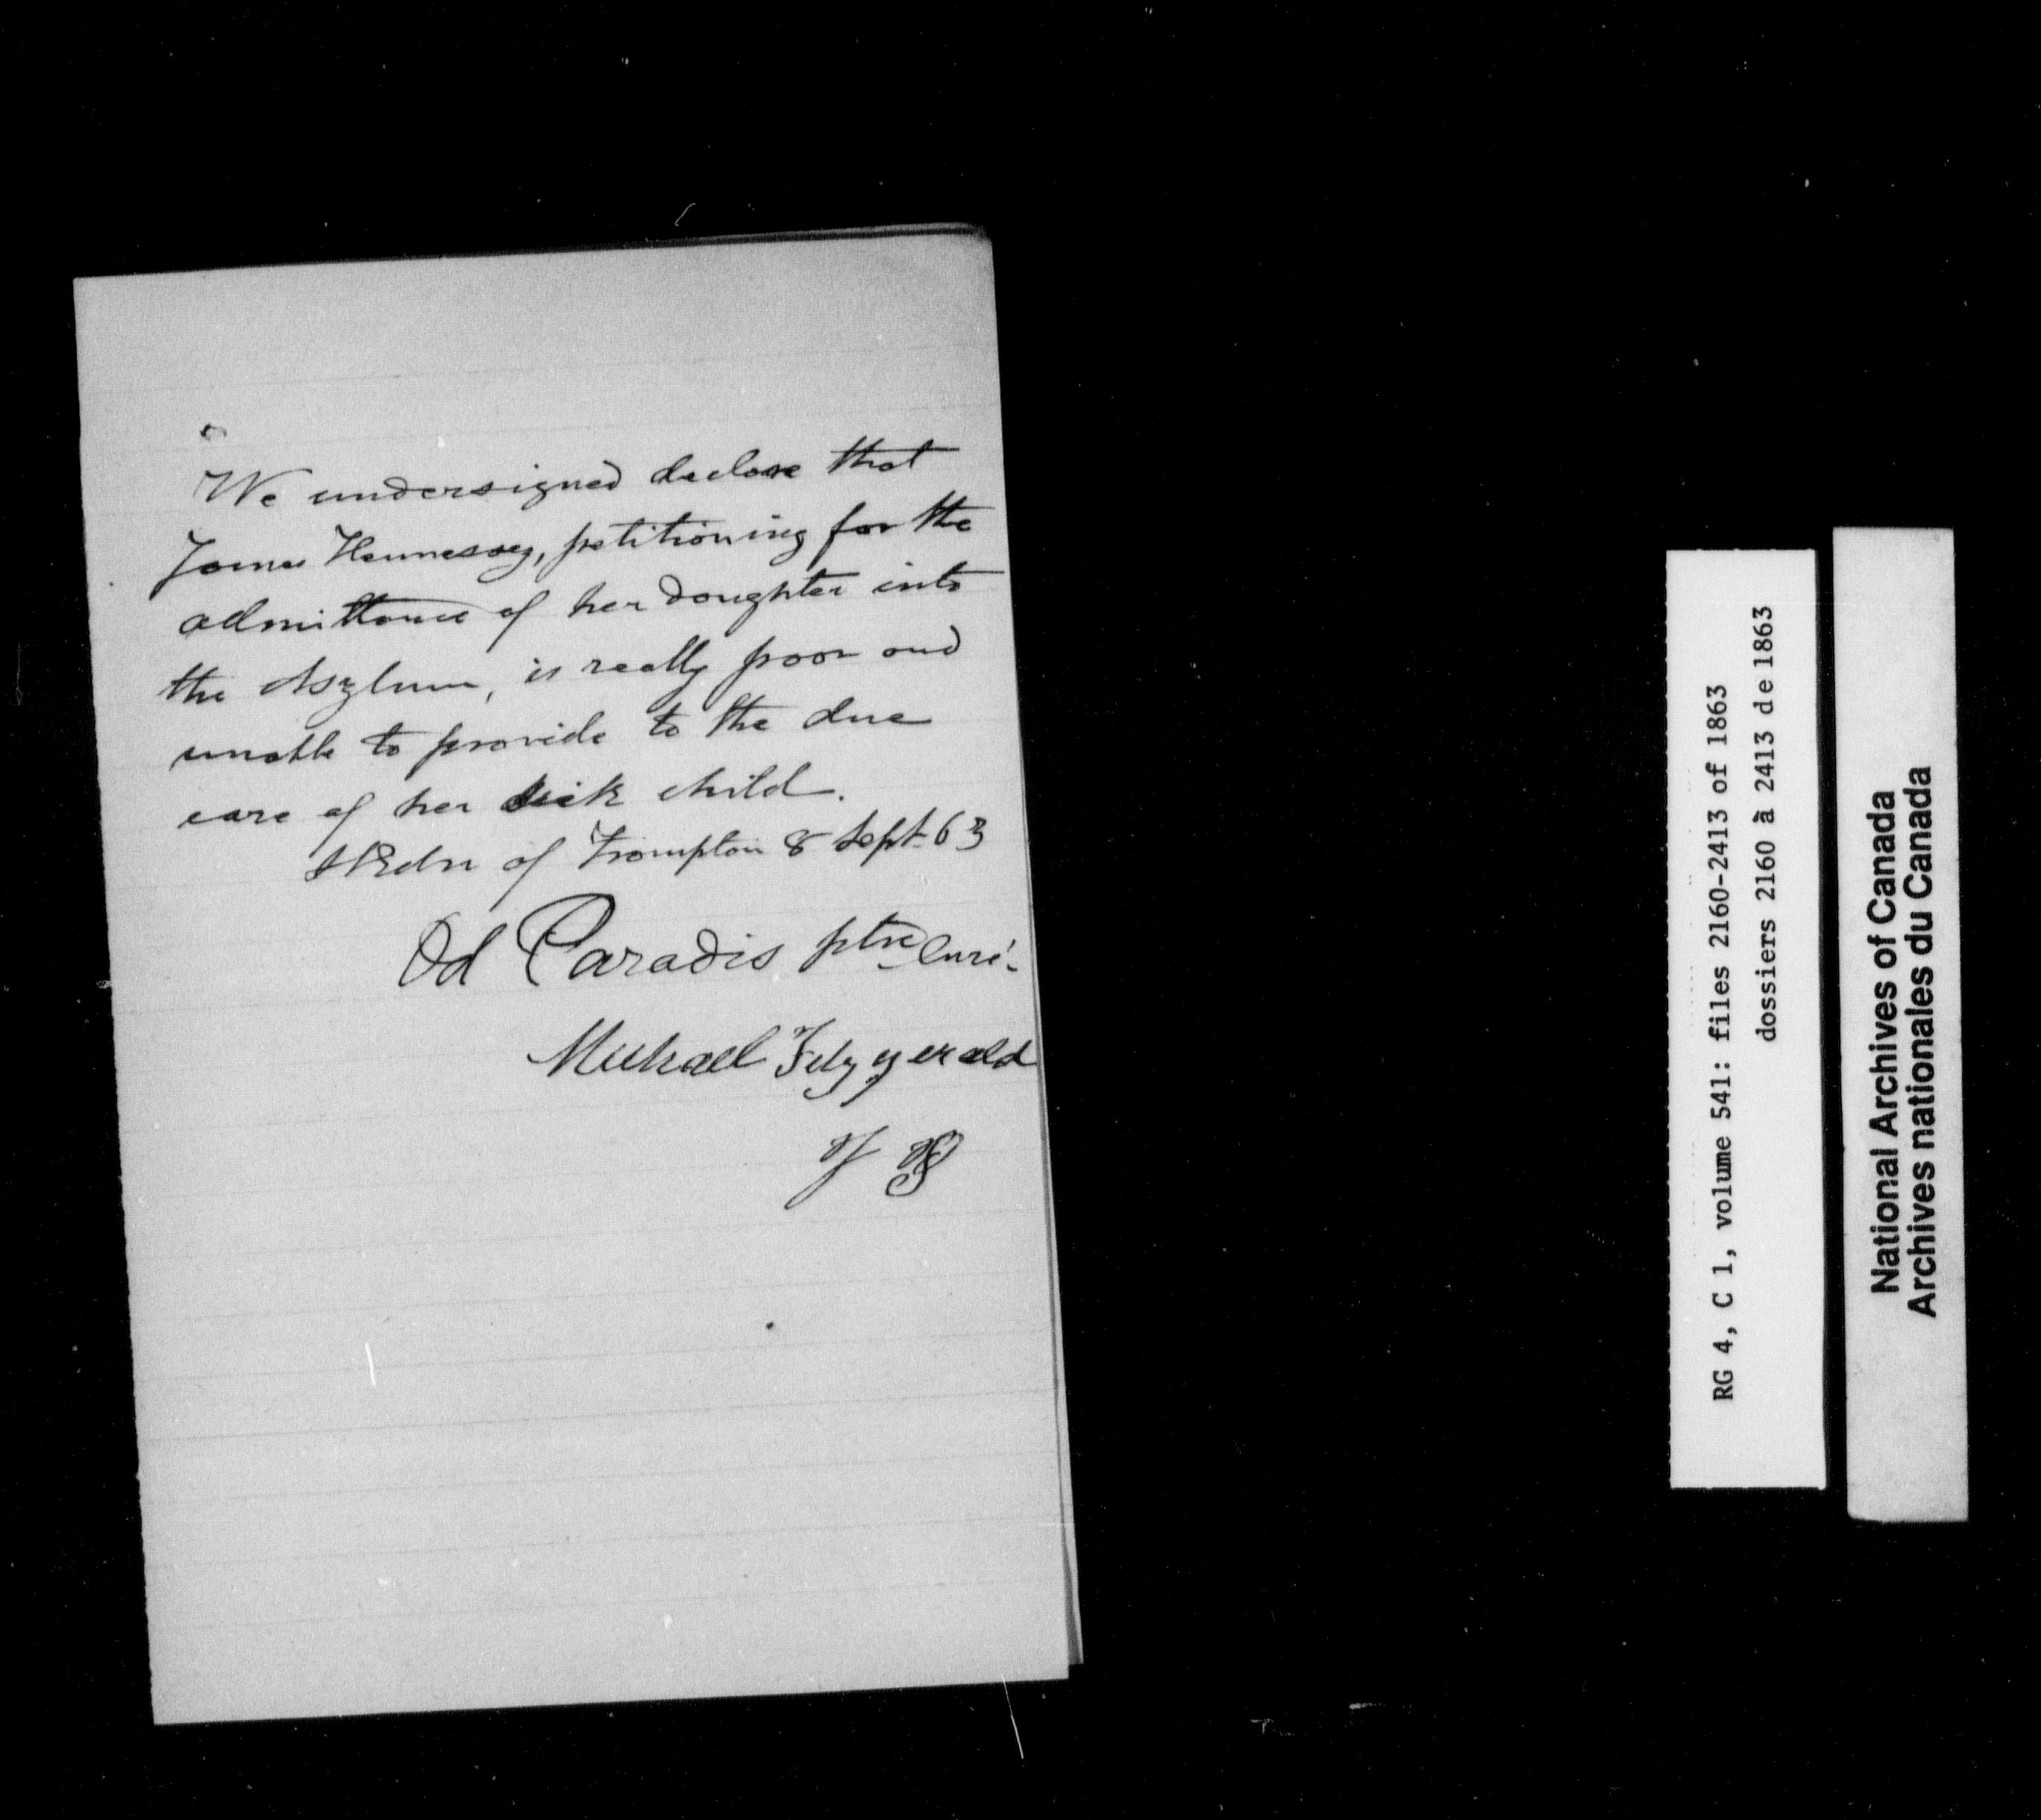 We undersigned declare that
James Hennessey, petitioning for the
admittance of her daughter into
the Asylum, is really poor and
unable to provide to the due
care of her sick child.
of Frampton 8 Sept. 63
Od Paradis ptre Curé.
Michael Fitzgerald
RG 4, C 1, volume 541: files 2160-2413 of 1863
dossiers 2160 à 2413 de 1863
National Archives of Canada
Archives nationales du Canada